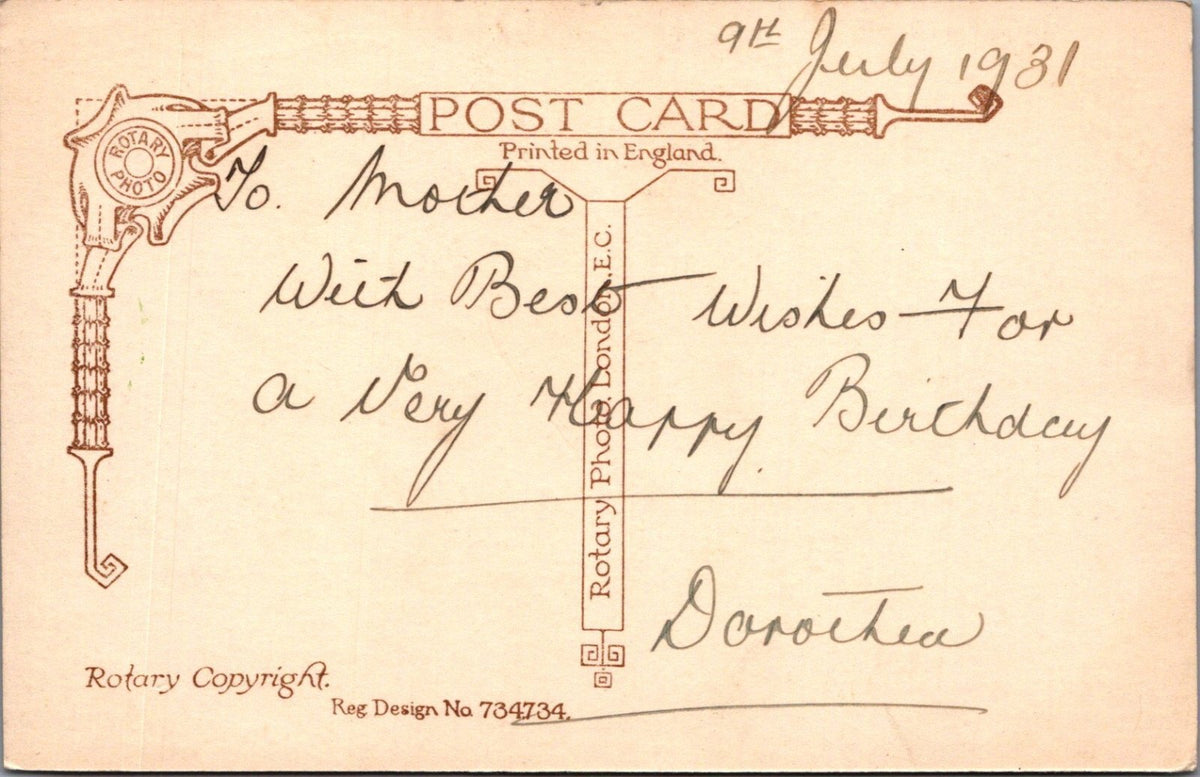 9th July 1931
POST CARD
ROTARY PHOTO
Printed in England.
To. Mother
With Best Wishes For
a Very Happy Birthday
Rotary Photo, London, E.C.
Dorothea
Rotary Copyright.
Reg Design No 734734.